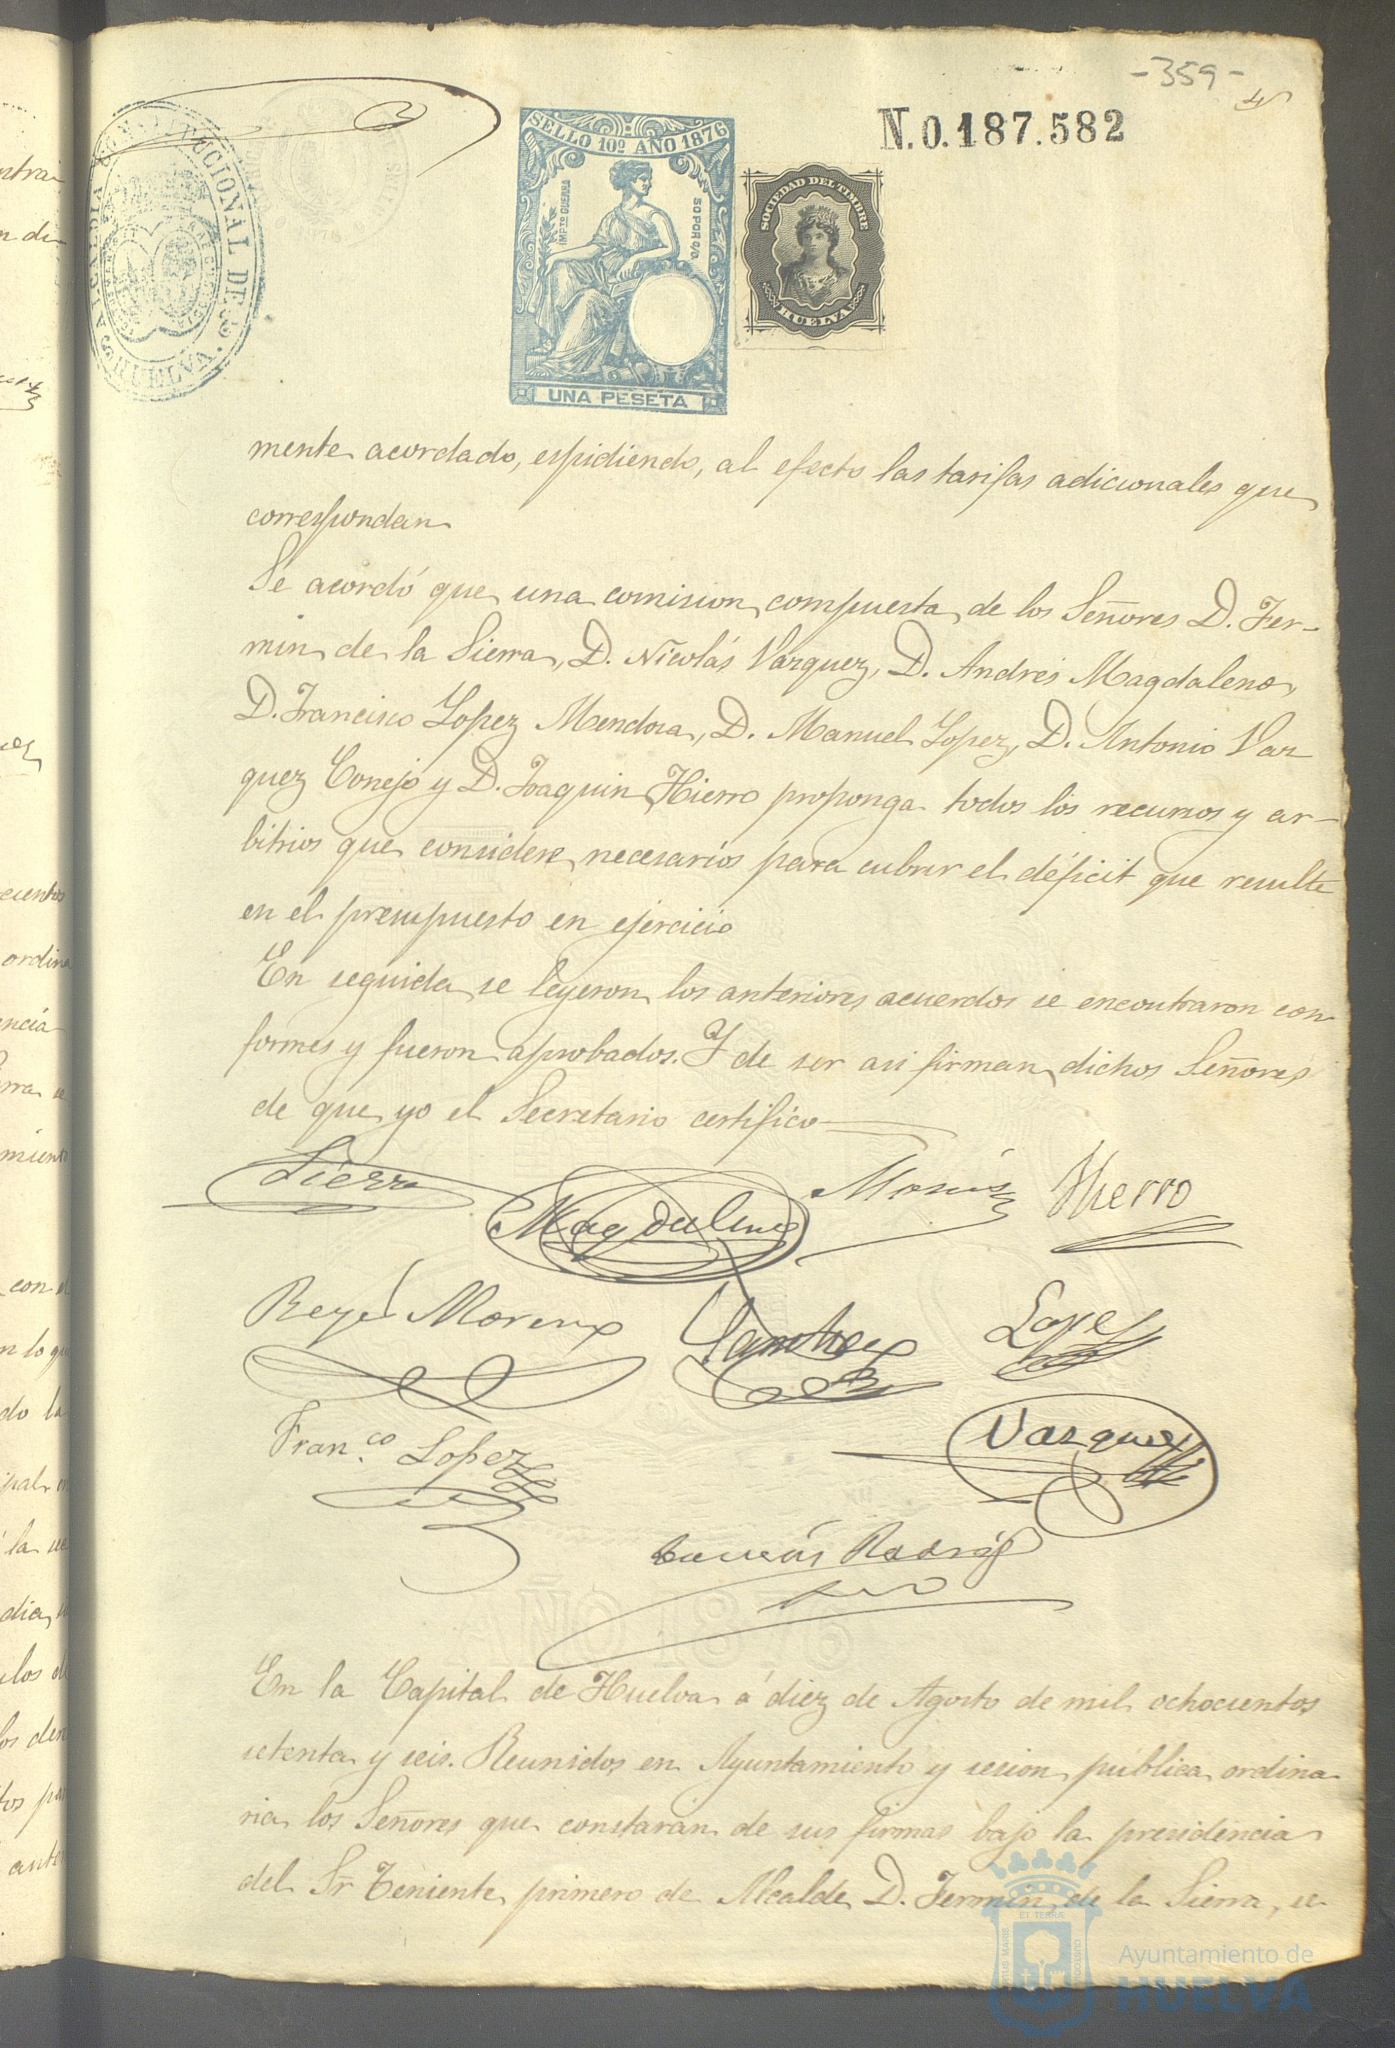 -359-
N. 0.187.582
ALCALDIA CONSTITUCIONAL DE HUELVA
SELLO 10º AÑO 1876
IMPTO GUERRA
50 POR 0/0
UNA PESETA
SOCIEDAD DEL TIMBRE
HUELVA
mente acordado, espidiendo, al efecto las tarifas adicionales que
correspondan
Se acordó que una comision compuesta de los Señores D. Fer-
min de la Sierra, D. Nicolás Vazquez, D. Andres Magdaleno,
D. Francisco Lopez Mendoza, D. Manuel Lopez, D. Antonio Vaz
quez Conejo y D. Joaquin Hierro proponga todos los recursos y ar-
bitrios que considere necesarios para cubrir el déficit que resulte
en el presupuesto en ejercicio
En seguida se leyeron los anteriores acuerdos se encontraron con
formes y fueron aprobados. Y de ser asi firman dichos Señores
de que yo el Secretario certifico
Sierra
Magdaleno
Hierro
Reyes Moreno
Sanchez
Lopez
Fran.co Lopez
Vazquez
AÑO 1876
En la Capital de Huelva á diez de Agosto de mil ochocientos
setenta y seis. Reunidos en Ayuntamiento y sesion pública ordina
ria los Señores que constarán de sus firmas bajo la presidencia
del Sr Teniente primero de Alcalde D. Fermin de la Sierra, se
Ayuntamiento de
HUELVA